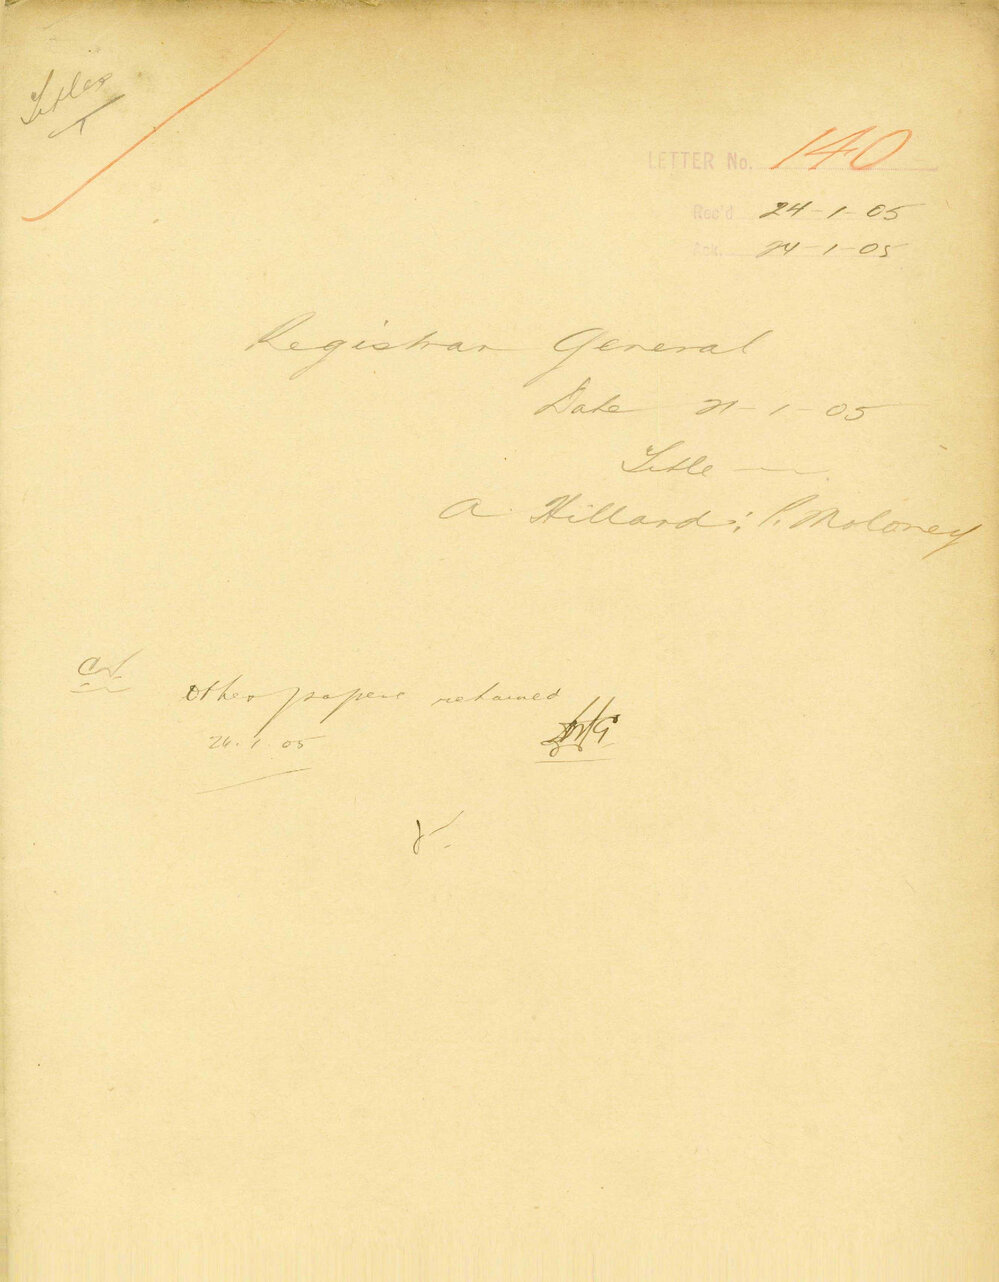 Titles
LETTER No. 140
Rec'd 24-1-05
Ack. 24-1-05
Registrar General
Date 21-1-05
Title
A Hillard; P. Moloney
Other papers returned
26.1.05